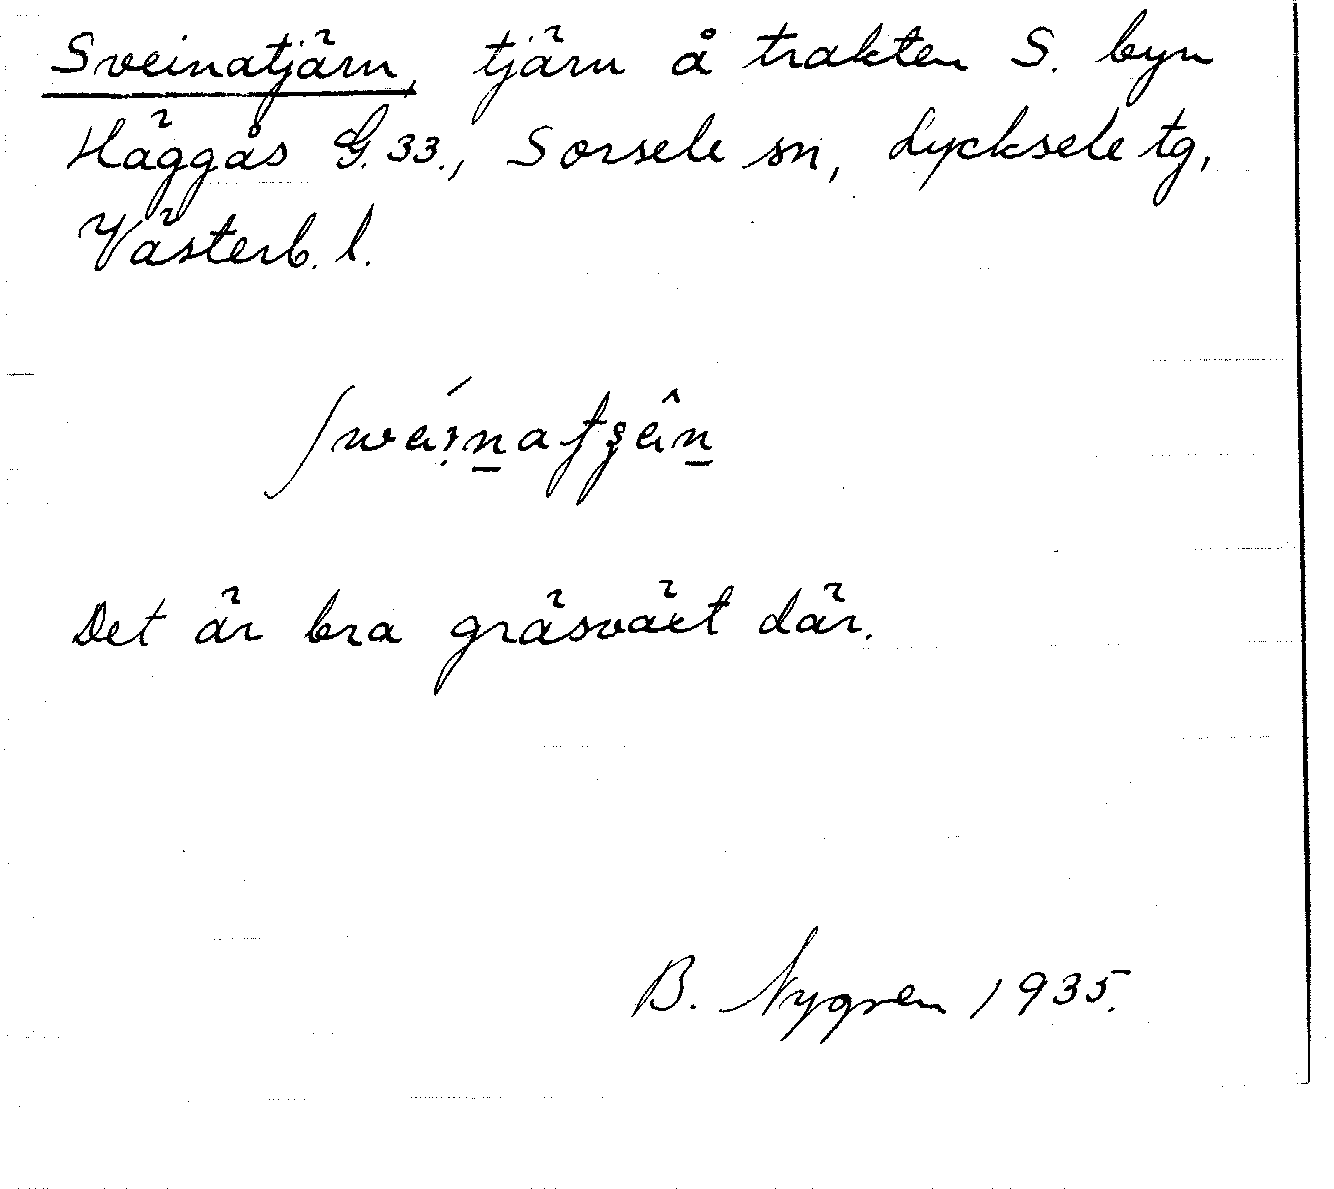 Sveinatjärn, tjärn å trakten S. byn
Häggås G. 33., Sorsele sn, Lycksele tg,
Västerb. l.
Det är bra gräsväxt där.
B. Nygren 1935.